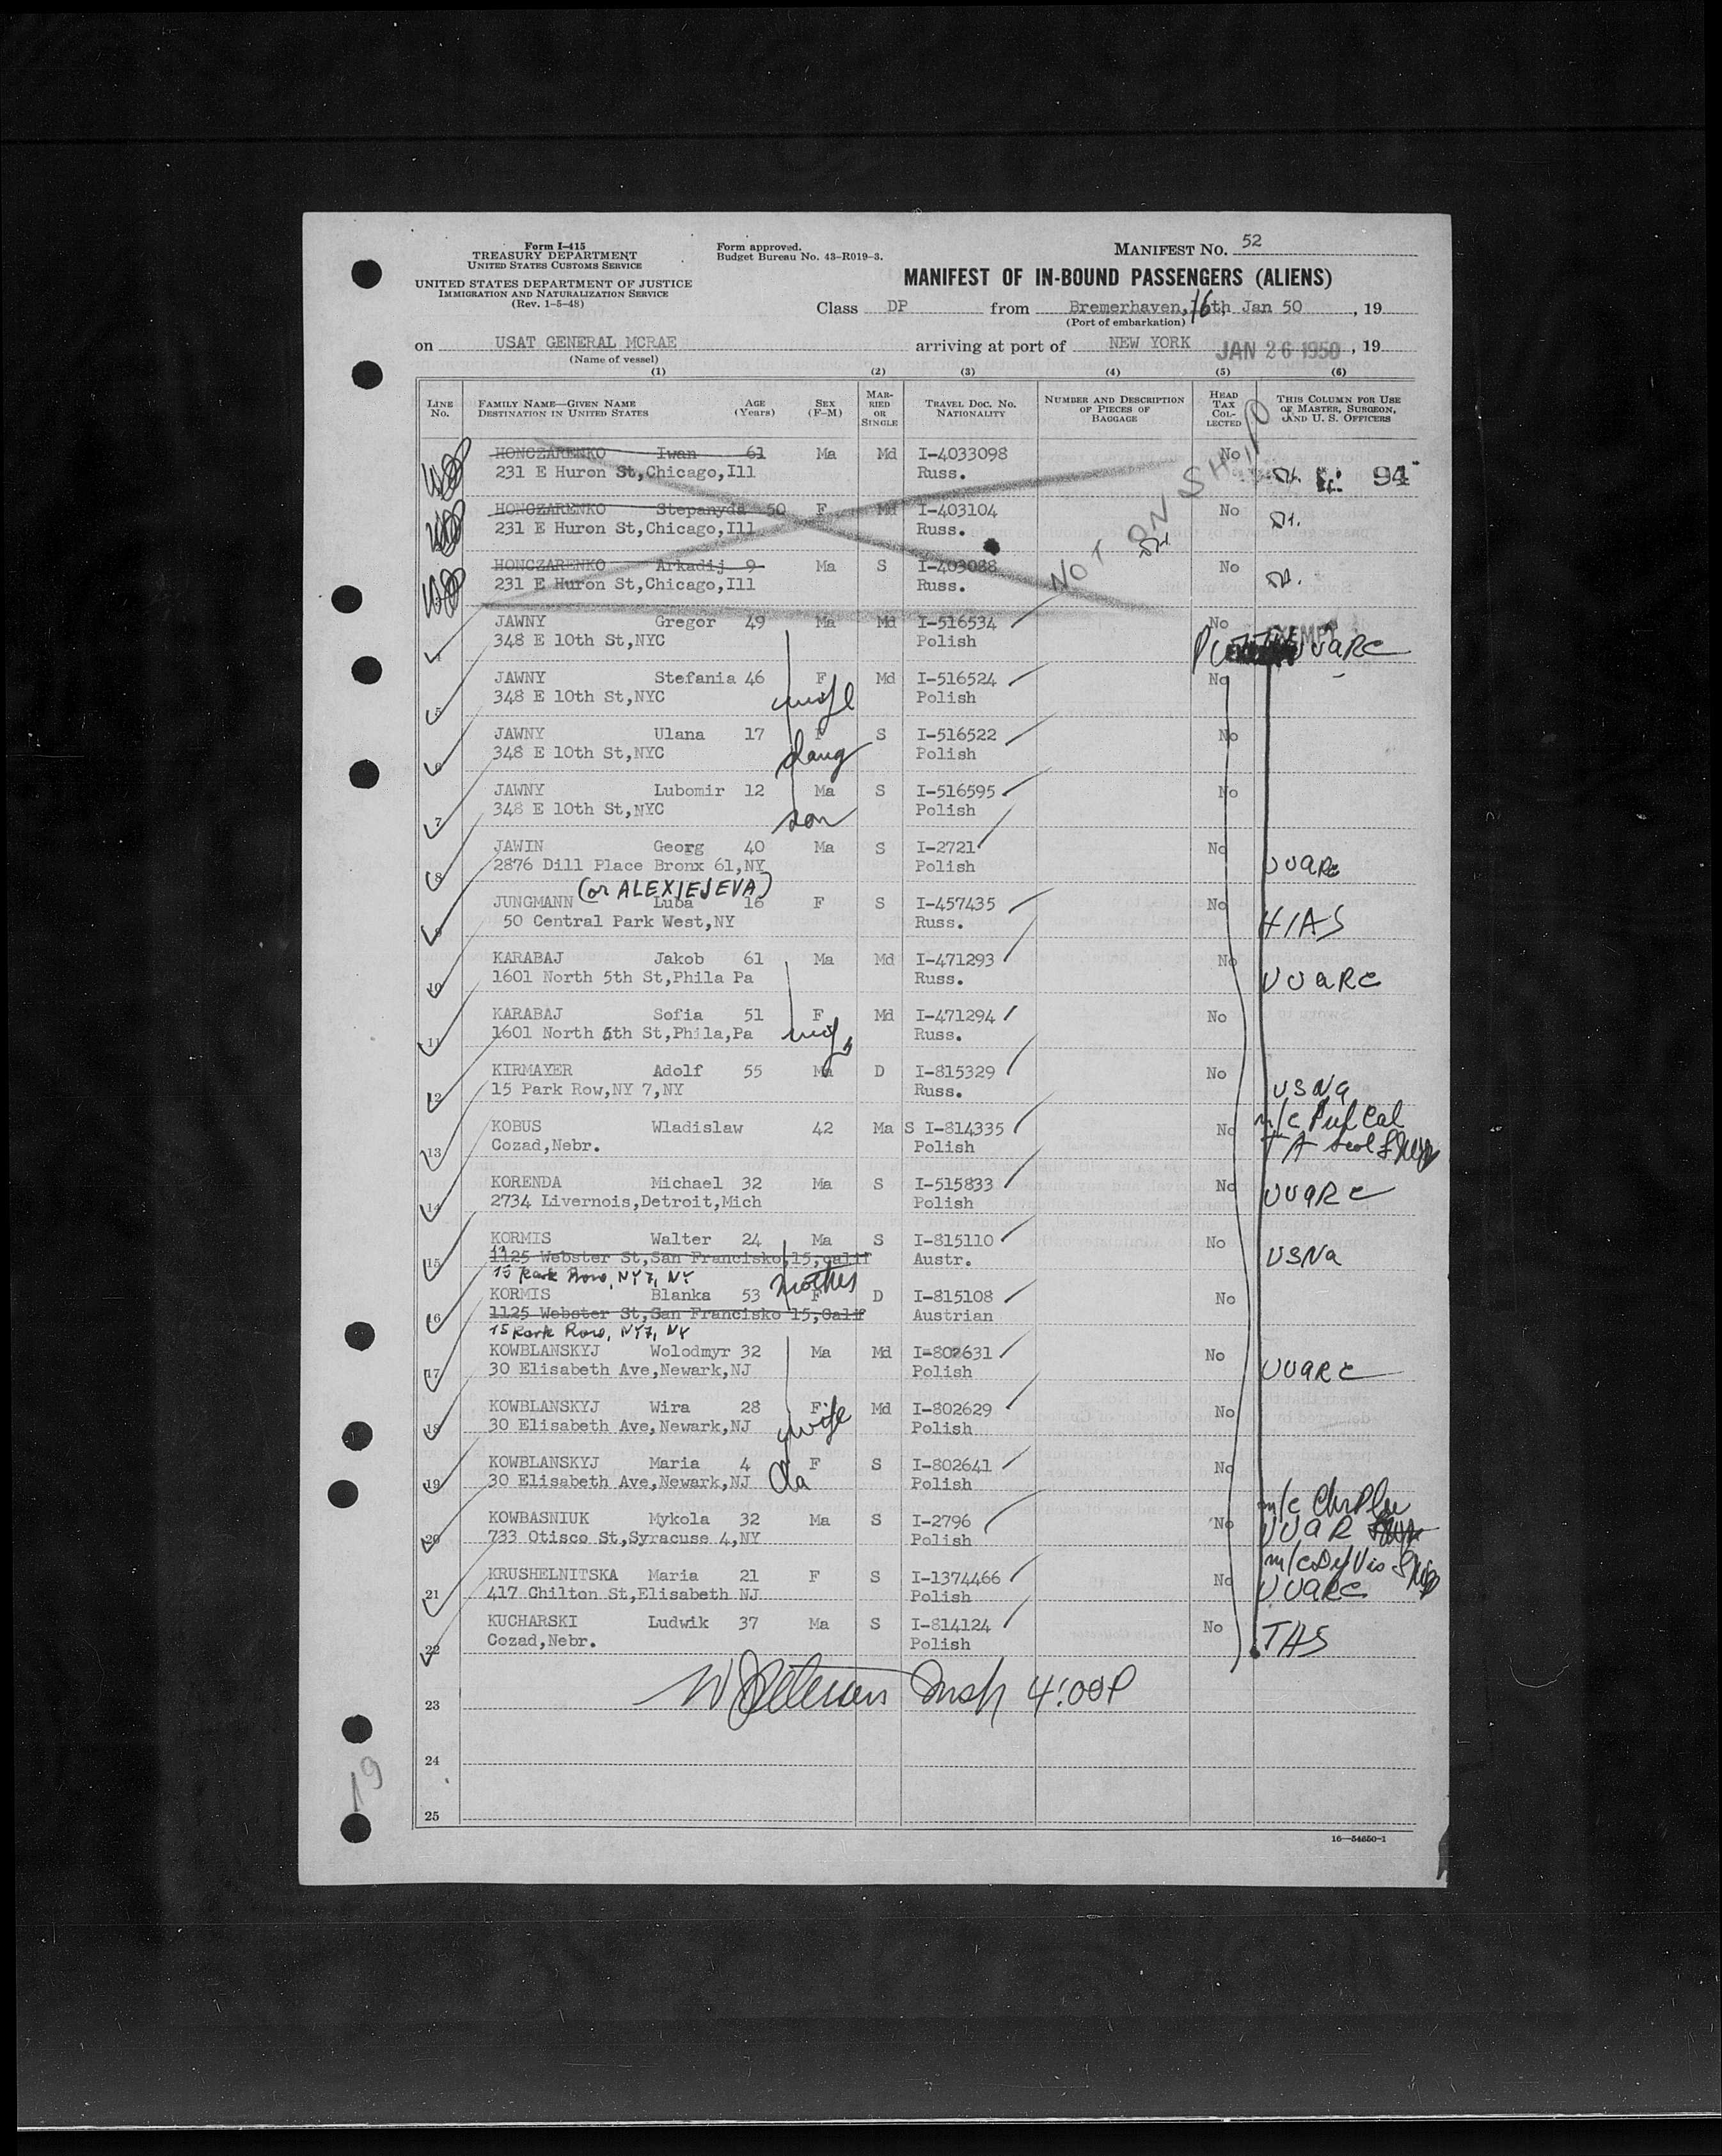 Form I-415
TREASURY DEPARTMENT
UNITED STATES CUSTOMS SERVICE
UNITED STATES DEPARTMENT OF JUSTICE
IMMIGRATION AND NATURALIZATION SERVICE
(Rev. 1-5-48)
Form approved.
Budget Bureau No. 43-R019-3.
MANIFEST NO. 52
MANIFEST OF IN-BOUND PASSENGERS (ALIENS)
Class DP from Bremerhaven, 16th Jan 50, 19
(Port of embarkation)
on USAT GENERAL MCRAE arriving at port of NEW YORK JAN 26 1950, 19
(Name of vessel)
(1) (2) (3) (4) (5) (6)
LINE NO. FAMILY NAME—GIVEN NAME DESTINATION IN UNITED STATES AGE (Years) SEX (F-M) MARRIED OR SINGLE TRAVEL DOC. NO. NATIONALITY NUMBER AND DESCRIPTION OF PIECES OF BAGGAGE HEAD TAX COLLECTED THIS COLUMN FOR USE OF MASTER, SURGEON, AND U. S. OFFICERS
HONCZARENKO Iwan 61 Ma Md I-4033098 No
231 E Huron St,Chicago,Ill Russ. 94
HONCZARENKO Stepanyda 50 F Md I-403104 No
231 E Huron St,Chicago,Ill Russ.
NOT ON SHIP
HONCZARENKO Arkadij 9 Ma S I-403088 No
231 E Huron St,Chicago,Ill Russ.
JAWNY Gregor 49 Ma Md I-516534 No
348 E 10th St,NYC Polish UUARC
5 JAWNY Stefania 46 F Md I-516524 No
348 E 10th St,NYC wife Polish
6 JAWNY Ulana 17 F S I-516522 No
348 E 10th St,NYC daug Polish
7 JAWNY Lubomir 12 Ma S I-516595 No
348 E 10th St,NYC son Polish
8 JAWIN Georg 40 Ma S I-2721 No
2876 Dill Place Bronx 61,NY Polish UUARC
(or ALEXIEJEVA)
9 JUNGMANN Luba 16 F S I-457435 No
50 Central Park West,NY Russ. HIAS
10 KARABAJ Jakob 61 Ma Md I-471293 No
1601 North 5th St,Phila Pa Russ. UUARC
11 KARABAJ Sofia 51 F Md I-471294 No
1601 North 5th St,Phila,Pa wife Russ.
12 KIRMAYER Adolf 55 Ma D I-815329 No
15 Park Row,NY 7,NY Russ. USNA
13 KOBUS Wladislaw 42 Ma S I-814335 No
Cozad,Nebr. Polish
14 KORENDA Michael 32 Ma S I-515833 No
2734 Livernois,Detroit,Mich Polish UUARC
15 KORMIS Walter 24 Ma S I-815110 No
1125 Webster St,San Francisko,15,Calif Austr. USNA
15 Park Row, NY7, NY mother
16 KORMIS Blanka 53 F D I-815108 No
1125 Webster St,San Francisko 15,Calif Austrian
15 Park Row, NY7, NY
17 KOWBLANSKYJ Wolodmyr 32 Ma Md I-802631 No
30 Elisabeth Ave,Newark,NJ Polish UUARC
18 KOWBLANSKYJ Wira 28 F Md I-802629 No
30 Elisabeth Ave,Newark,NJ wife Polish
19 KOWBLANSKYJ Maria 4 F S I-802641 No
30 Elisabeth Ave,Newark,NJ Da Polish
20 KOWBASNIUK Mykola 32 Ma S I-2796 No
733 Otisco St,Syracuse 4,NY Polish UUAR
21 KRUSHELNITSKA Maria 21 F S I-1374466 No
417 Chilton St,Elisabeth NJ Polish UUARC
22 KUCHARSKI Ludwik 37 Ma S I-814124 No
Cozad,Nebr. Polish
Insp 4:00P
23
24
25
19
16—54650-1